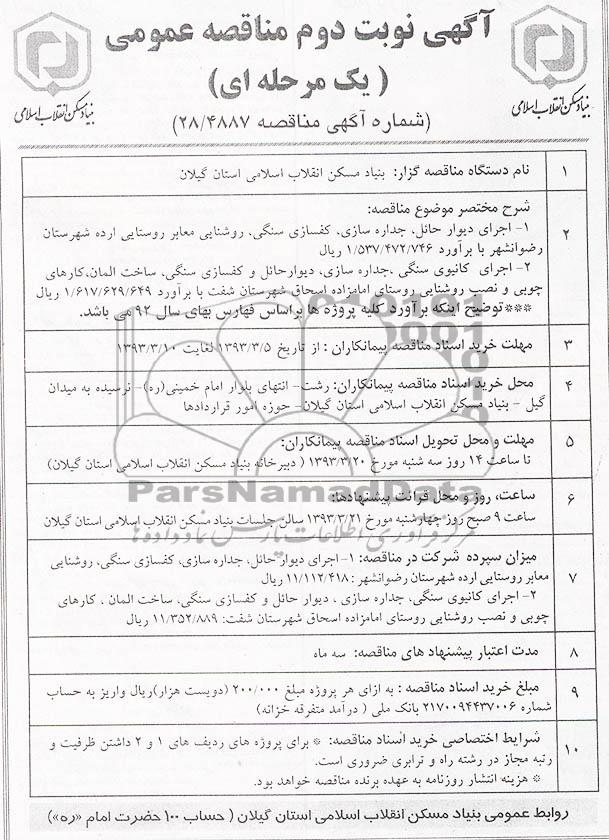 آگهی نوبت دوم مناقصه عمومی
( یک مرحله ای)
(شماره آگهی مناقصه ۲۸/۴۸۸۷)
بنیاد مسکن انقلاب اسلامی
بنیاد مسکن انقلاب اسلامی
۱ نام دستگاه مناقصه گزار: بنیاد مسکن انقلاب اسلامی استان گیلان
۲ شرح مختصر موضوع مناقصه:
۱- اجرای دیوار حائل، جداره سازی، کفسازی سنگی، روشنایی معابر روستایی ارده شهرستان
رضوانشهر با برآورد ۱/۵۳۷/۴۷۲/۷۴۶ ریال
۲- اجرای کانیوی سنگی ،جداره سازی، دیوارحائل و کفسازی سنگی، ساخت المان،کارهای
چوبی و نصب روشنایی روستای امامزاده اسحاق شهرستان شفت با برآورد ۱/۶۱۷/۶۲۹/۶۴۹ ریال
***توضیح اینکه برآورد کلیه پروژه ها براساس فهارس بهای سال ۹۲ می باشد.
۳ مهلت خرید اسناد مناقصه پیمانکاران : از تاریخ ۱۳۹۳/۳/۵ لغایت ۱۳۹۳/۳/۱۰
۴ محل خرید اسناد مناقصه پیمانکاران: رشت- انتهای بلوار امام خمینی(ره)- نرسیده به میدان
گیل - بنیاد مسکن انقلاب اسلامی استان گیلان- حوزه امور قراردادها
۵ مهلت و محل تحویل اسناد مناقصه پیمانکاران:
تا ساعت ۱۴ روز سه شنبه مورخ ۱۳۹۳/۳/۲۰ ( دبیرخانه بنیاد مسکن انقلاب اسلامی استان گیلان)
۶ ساعت، روز و محل قرائت پیشنهادها:
ساعت ۹ صبح روز چهارشنبه مورخ ۱۳۹۳/۳/۲۱ سالن جلسات بنیاد مسکن انقلاب اسلامی استان گیلان
ParsNamadData
مرکز فرآوری اطلاعات پارس نماد داده ها
۷ میزان سپرده شرکت در مناقصه: ۱-اجرای دیوار حائل، جداره سازی، کفسازی سنگی، روشنایی
معابر روستایی ارده شهرستان رضوانشهر : ۱۱/۱۱۲/۴۱۸ ریال
۲- اجرای کانیوی سنگی، جداره سازی ، دیوار حائل و کفسازی سنگی، ساخت المان ، کارهای
چوبی و نصب روشنایی روستای امامزاده اسحاق شهرستان شفت: ۱۱/۳۵۲/۸۸۹ ریال
۸ مدت اعتبار پیشنهاد های مناقصه: سه ماه
۹ مبلغ خرید اسناد مناقصه : به ازای هر پروژه مبلغ ۲۰۰/۰۰۰ (دویست هزار)ریال واریز به حساب
شماره ۲۱۷۰۰۹۴۴۳۷۰۰۶ بانک ملی ( درآمد متفرقه خزانه)
۱۰ شرایط اختصاصی خرید اسناد مناقصه: * برای پروژه های ردیف های ۱ و ۲ داشتن ظرفیت و
رتبه مجاز در رشته راه و ترابری ضروری است.
* هزینه انتشار روزنامه به عهده برنده مناقصه خواهد بود.
روابط عمومی بنیاد مسکن انقلاب اسلامی استان گیلان ( حساب ۱۰۰ حضرت امام «ره»)